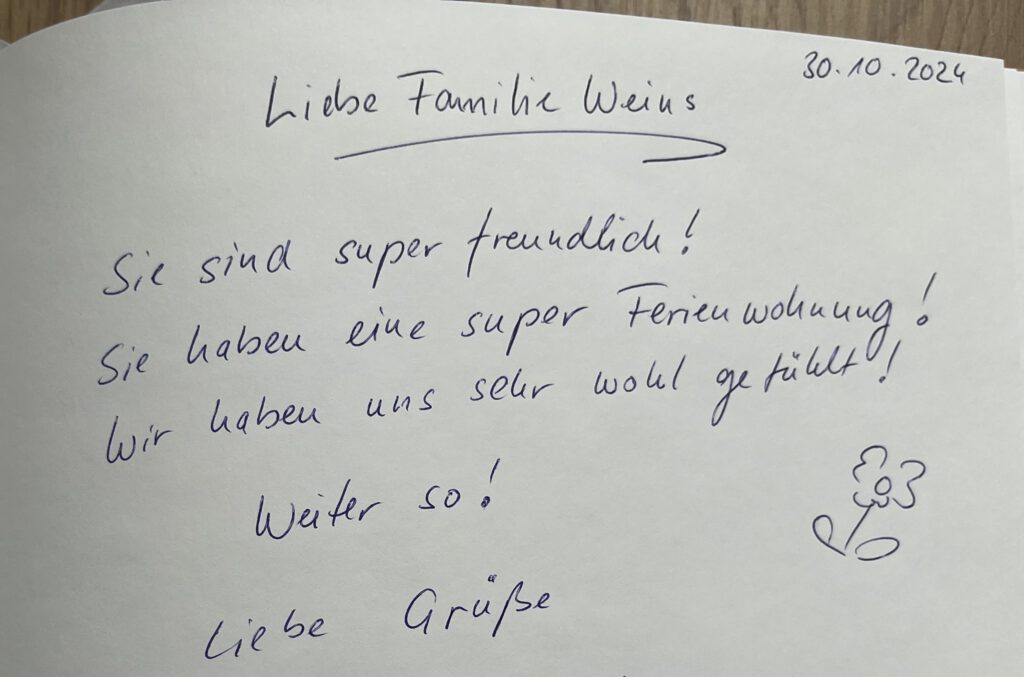 30.10.2024
Liebe Familie Weins
Sie sind super freundlich!
Sie haben eine super Ferienwohnung!
Wir haben uns sehr wohl gefühlt!
Weiter so!
Liebe Grüße